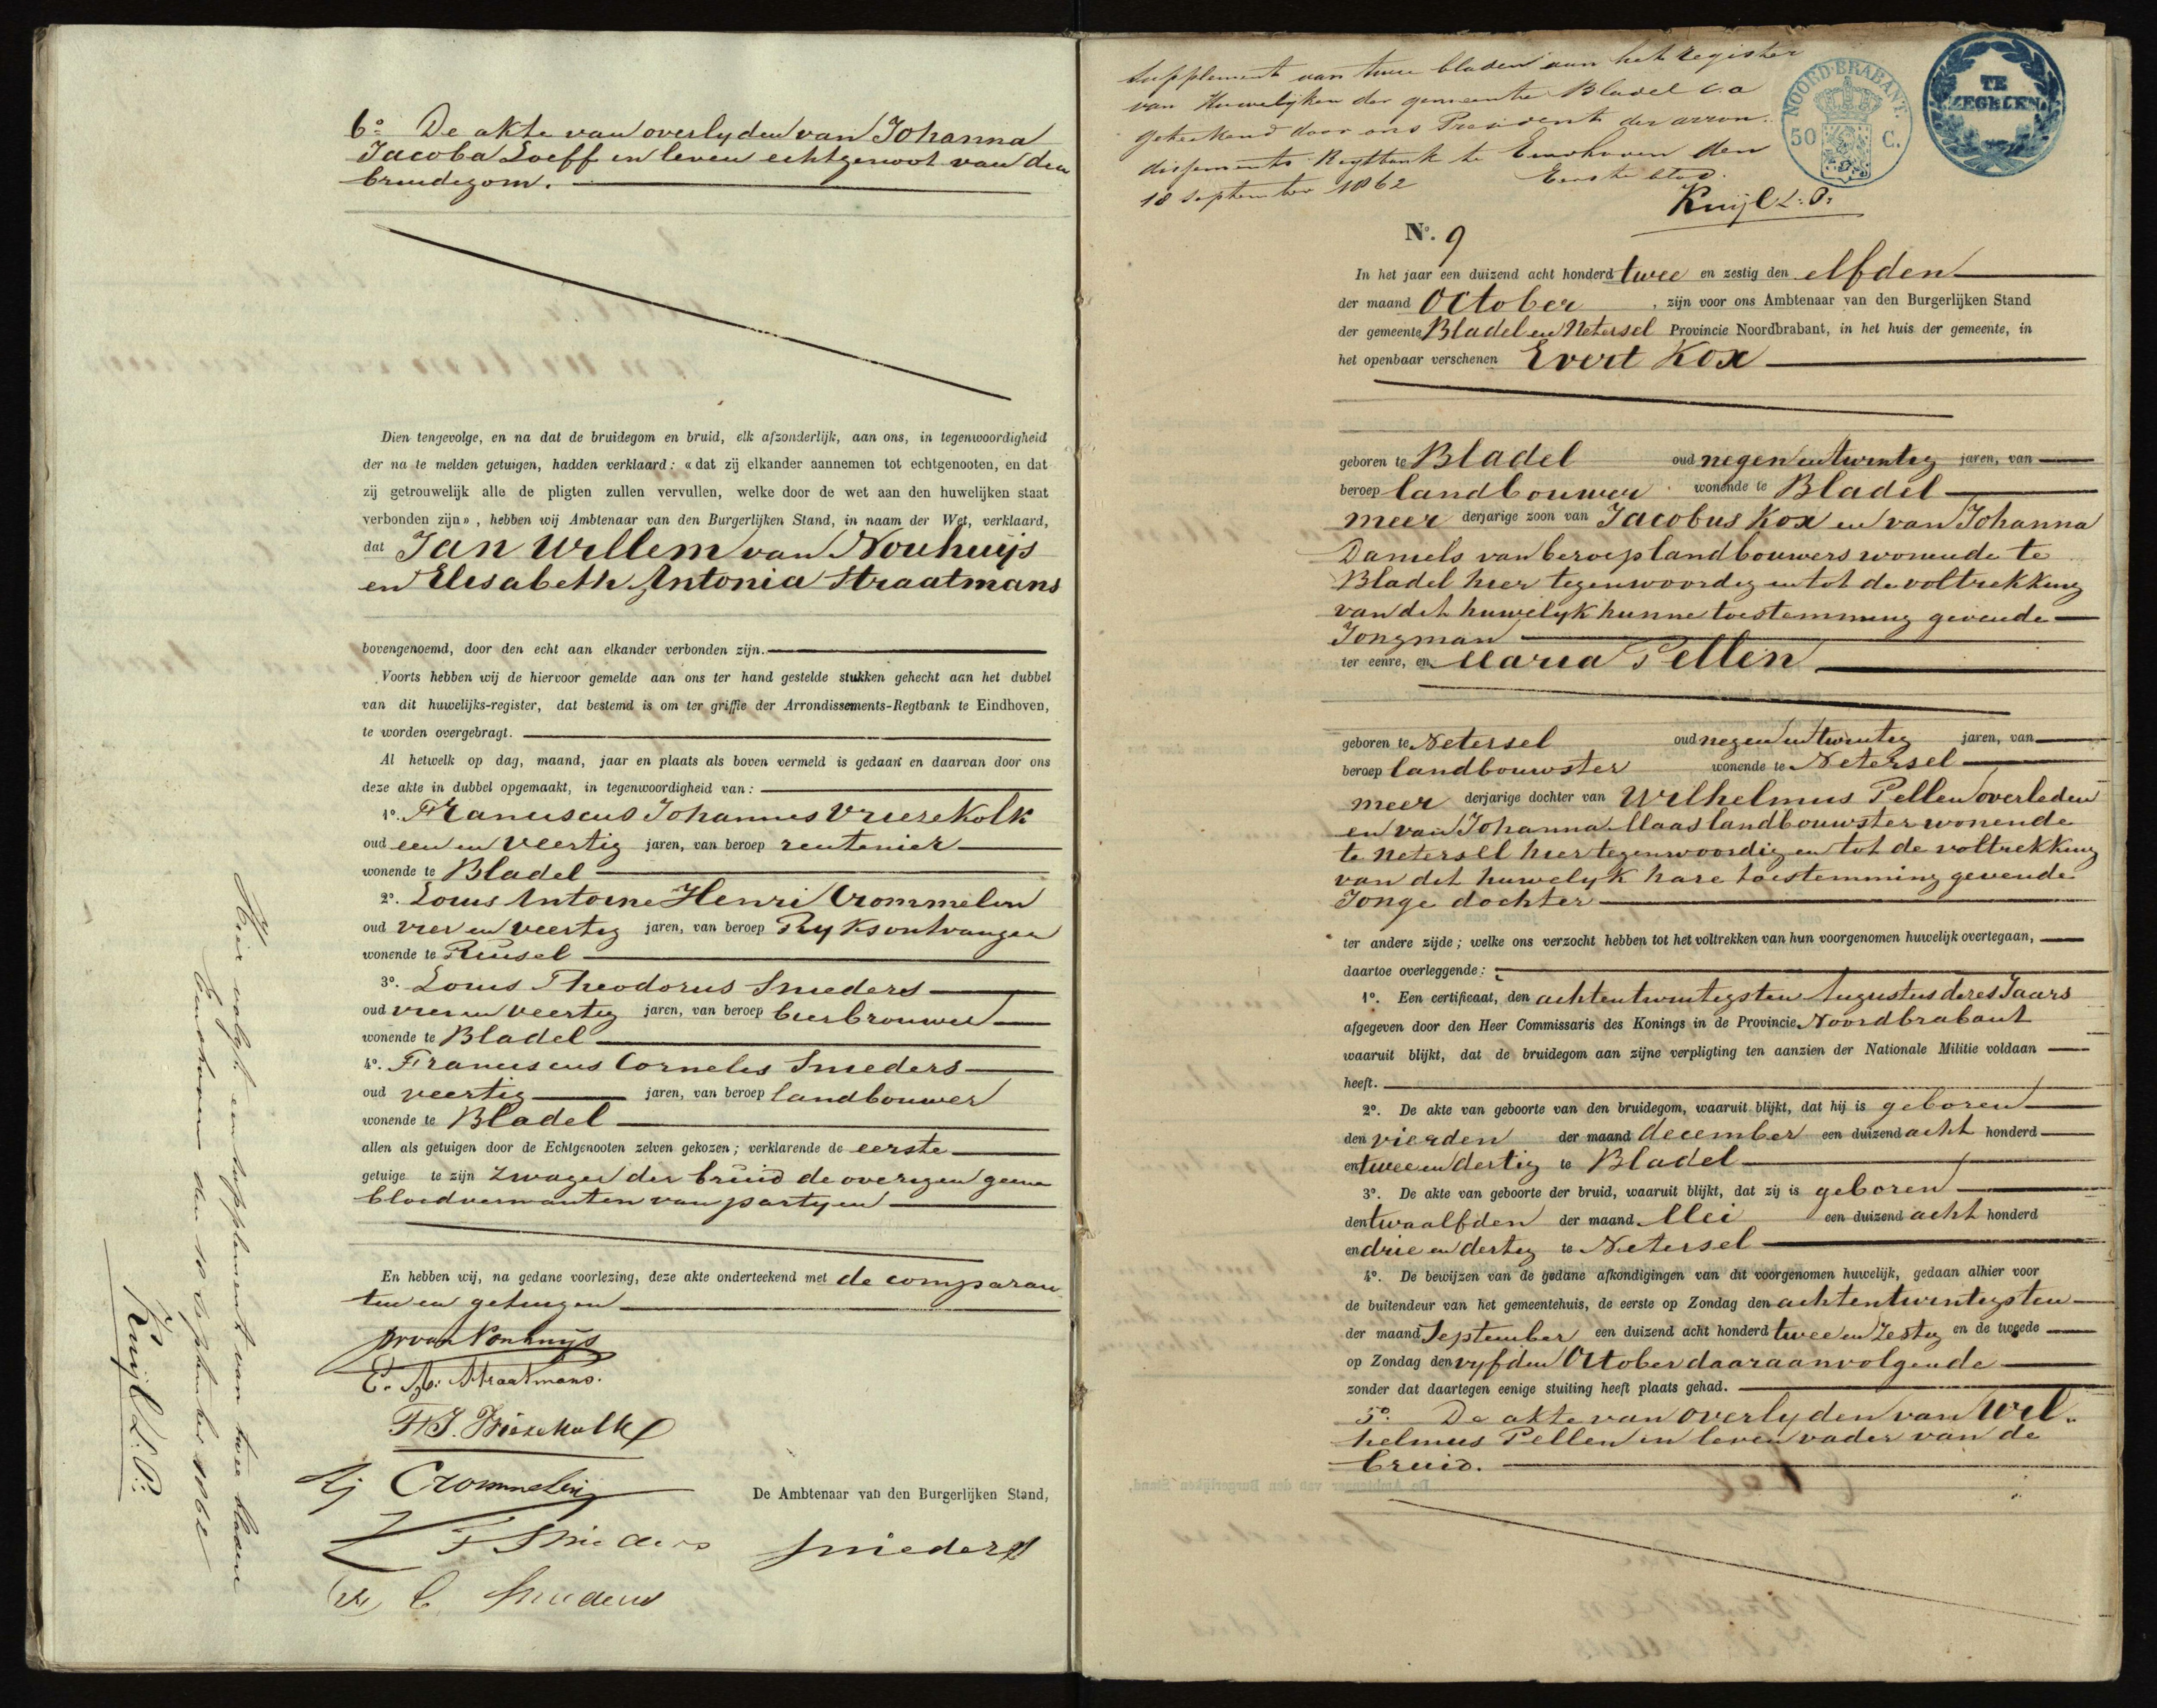 6o. De akte van overlyden van Johanna
Jacoba Loeff in leven echtgenoot van den
bruidegom.
Dien tengevolge, en na dat de bruidegom en bruid, elk afzonderlijk, aan ons, in tegenwoordigheid
der na te melden getuigen, hadden verklaard: «dat zij elkander aannemen tot echtgenooten, en dat
zij getrouwelijk alle de pligten zullen vervullen, welke door de wet aan den huwelijken staat
verbonden zijn», hebben wij Ambtenaar van den Burgerlijken Stand, in naam der Wet, verklaard,
dat Jan Willem van Nouhuijs
en Elisabeth Antonia Straatmans
bovengenoemd, door den echt aan elkander verbonden zijn.
Voorts hebben wij de hiervoor gemelde aan ons ter hand gestelde stukken gehecht aan het dubbel
van dit huwelijks-register, dat bestemd is om ter griffie der Arrondissements-Regtbank te Eindhoven,
te worden overgebragt.
Al hetwelk op dag, maand, jaar en plaats als boven vermeld is gedaan en daarvan door ons
deze akte in dubbel opgemaakt, in tegenwoordigheid van:
1o. Franciscus Johannes Vriesekolk
oud een en veertig jaren, van beroep rentenier
wonende te Bladel
2o. Louis Antoine Henri Crommelin
oud vier en veertig jaren, van beroep Ryksontvanger
wonende te Reusel
3o. Louis Theodorus Snieders
oud vier en veertig jaren, van beroep bierbrouwer
wonende te Bladel
4o. Franciscus Cornelis Snieders
oud veertig jaren, van beroep landbouwer
wonende te Bladel
allen als getuigen door de Echtgenooten zelven gekozen; verklarende de eerste
getuige te zijn zwager der bruid de overigen geene
bloedverwanten van partyen
En hebben wij, na gedane voorlezing, deze akte onderteekend met de comparan
ten en getuigen
van Nouhuijs
E. A. Straatmans.
F. J. Vriesekolk
Crommelin
De Ambtenaar van den Burgerlijken Stand,
Snieders
Snieders
C. Snieders
Hier volgt een supplement van twee bladen
Eindhoven den 18 September 1862
Kuijl L. P.
Supplement van twee bladen aan het register
van Huwelijken der gemeente Bladel c.a
getekend door ons President der arron-
dissements Regtbank te Eindhoven den
18 september 1862 Eerste blad.
Kuijl L. P.
NOORD-BRABANT.
50 C.
TE
ZEGELEN.
No. 9
In het jaar een duizend acht honderd twee en zestig den elfden
der maand October, zijn voor ons Ambtenaar van den Burgerlijken Stand
der gemeente Bladel en Netersel Provincie Noordbrabant, in het huis der gemeente, in
het openbaar verschenen Evert Kox
geboren te Bladel oud negen en twintig jaren, van
beroep landbouwer wonende te Bladel
meer derjarige zoon van Jacobus Kox en van Johanna
Daniels van beroep landbouwers wonende te
Bladel hier tegenwoordig en tot de voltrekking
van dit huwelyk hunne toestemming gevende
Jongman
ter eenre, en Maria Pellen
geboren te Netersel oud negen en twintig jaren, van
beroep landbouwster wonende te Netersel
meer derjarige dochter van Wilhelmus Pellen overleden
en van Johanna Maas landbouwster wonende
te Netersel hier tegenwoordig en tot de voltrekking
van dit huwelyk hare toestemming gevende
Jonge dochter
ter andere zijde; welke ons verzocht hebben tot het voltrekken van hun voorgenomen huwelijk overtegaan,
daartoe overleggende:
1o. Een certificaat, den achtentwintigsten Augustus dezes Jaars
afgegeven door den Heer Commissaris des Konings in de Provincie Noordbrabant
waaruit blijkt, dat de bruidegom aan zijne verpligting ten aanzien der Nationale Militie voldaan
heeft.
2o. De akte van geboorte van den bruidegom, waaruit blijkt, dat hij is geboren
den vierden der maand december een duizend acht honderd
en twee en dertig te Bladel
3o. De akte van geboorte der bruid, waaruit blijkt, dat zij is geboren
den twaalfden der maand Mei een duizend acht honderd
en drie en dertig te Netersel
4o. De bewijzen van de gedane afkondigingen van dit voorgenomen huwelijk, gedaan alhier voor
de buitendeur van het gemeentehuis, de eerste op Zondag den achtentwintigsten
der maand September een duizend acht honderd twee en zestig en de tweede
op Zondag den vyfden October daaraanvolgende
zonder dat daartegen eenige stuiting heeft plaats gehad.
5o. De akte van overlyden van Wil-
helmus Pellen in leven vader van de
bruid.